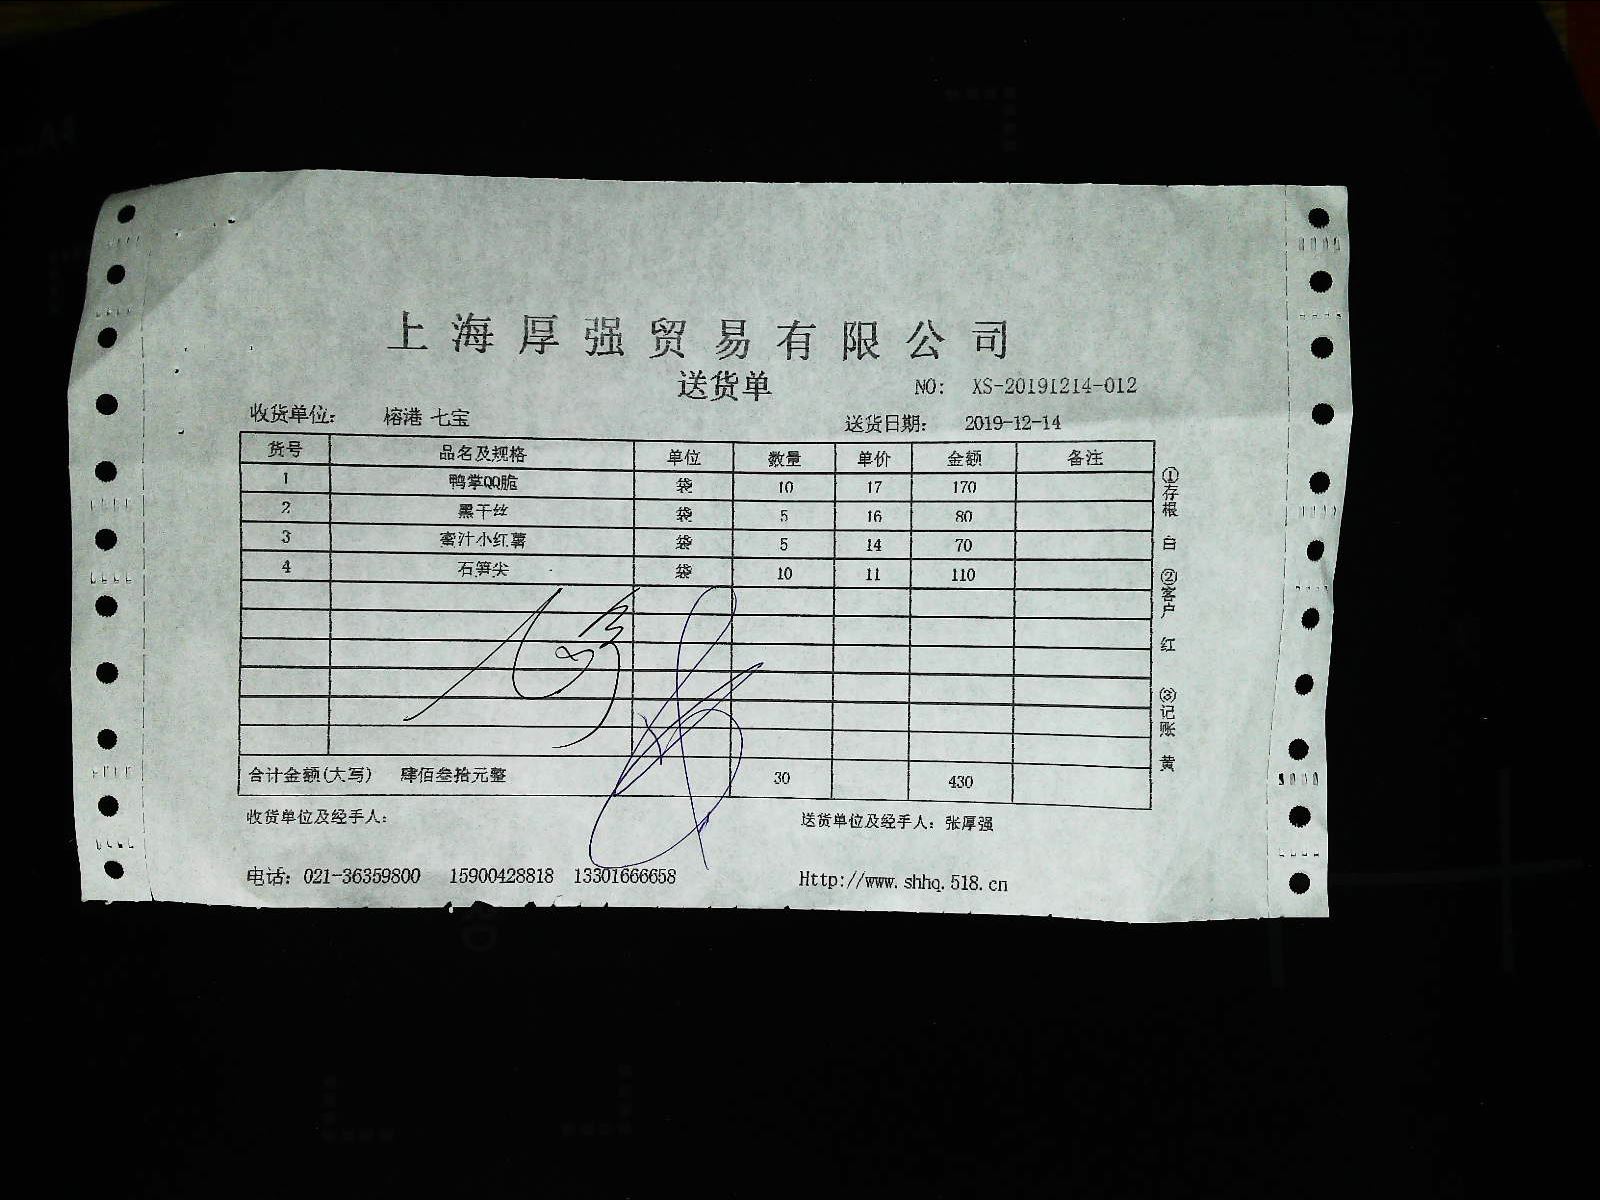 上海厚强贸易有限公司
送货单 NO: XS-20191214-012
收货单位: 榕港 七宝 送货日期: 2019-12-14
货号 品名及规格 单位 数量 单价 金额 备注
1 鸭掌QQ脆 袋 10 17 170
2 黑干丝 袋 5 16 80
3 蜜汁小红薯 袋 5 14 70
4 石笋尖 袋 10 11 110
合计金额(大写) 肆佰叁拾元整 30 430
收货单位及经手人: 送货单位及经手人: 张厚强
电话: 021-36359800 15900428818 13301666658 Http://www.shhq.518.cn
①存根 白 ②客户 红 ③记账 黄